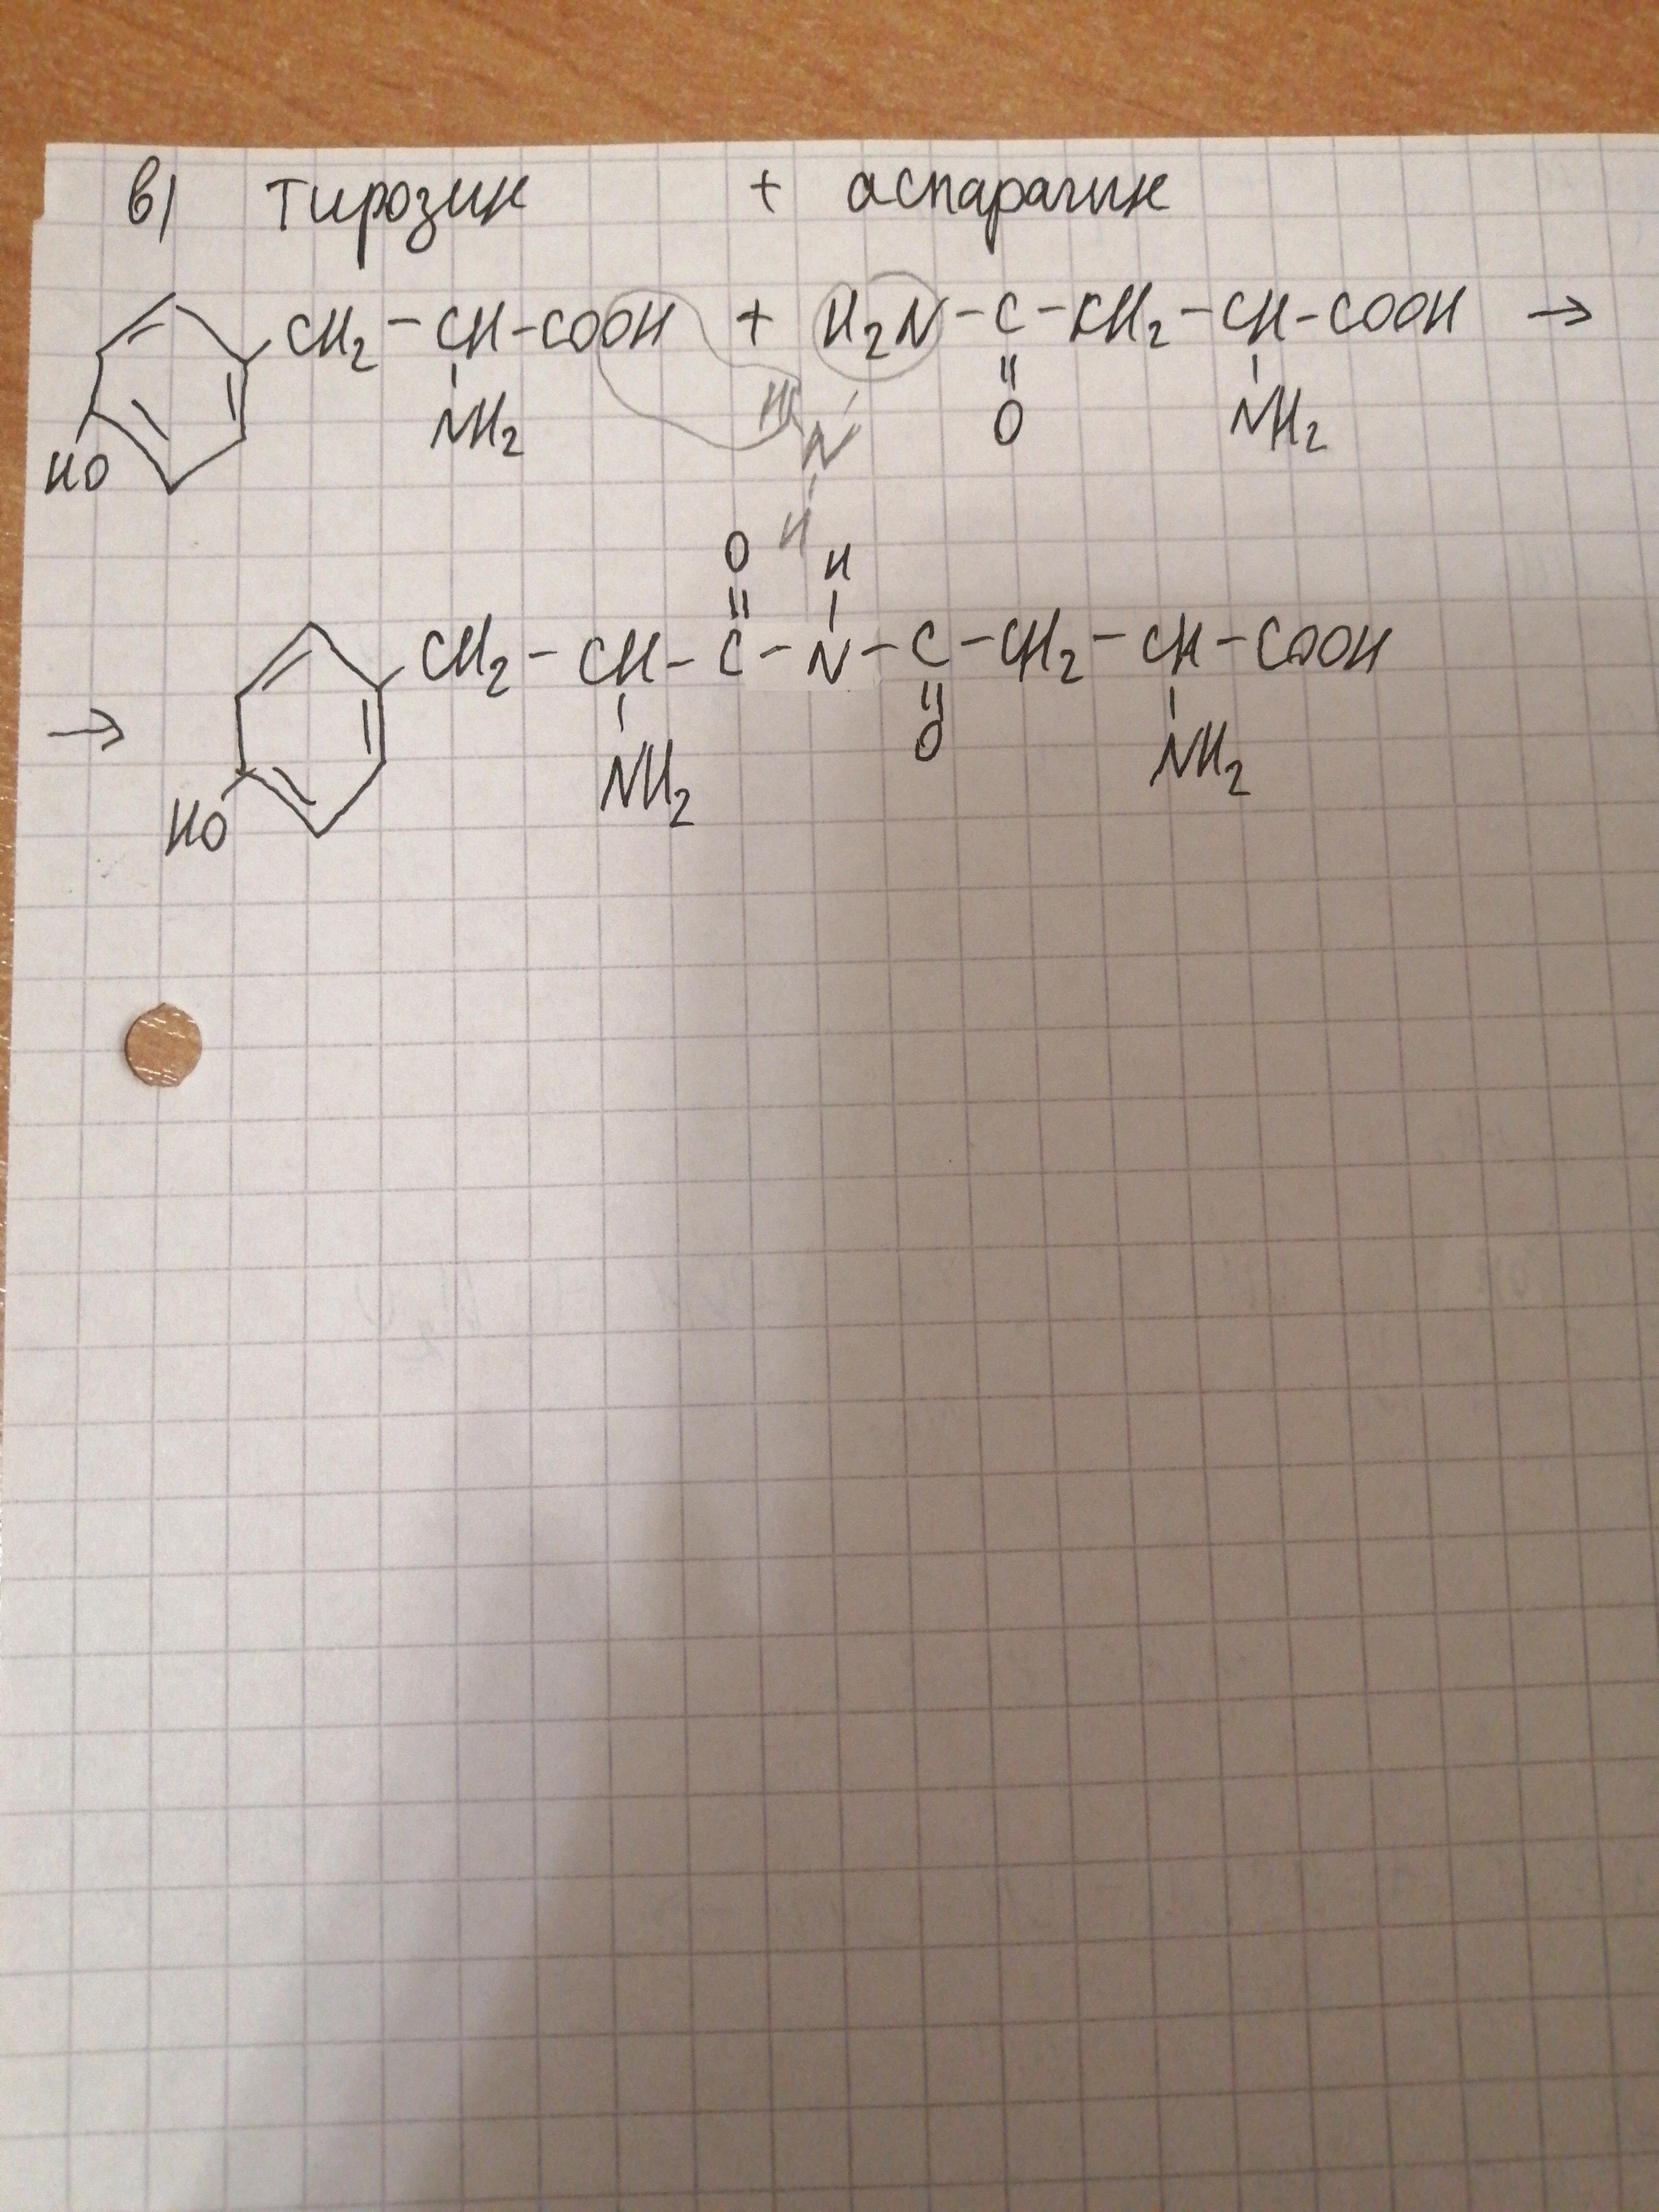 в) тирозин + аспарагин
CH₂ - CH - COOH + H₂N - C - CH₂ - CH - COOH →
HO NH₂ H O NH₂
N
H
O H
CH₂ - CH - C - N - C - CH₂ - CH - COOH
→ NH₂ O NH₂
HO